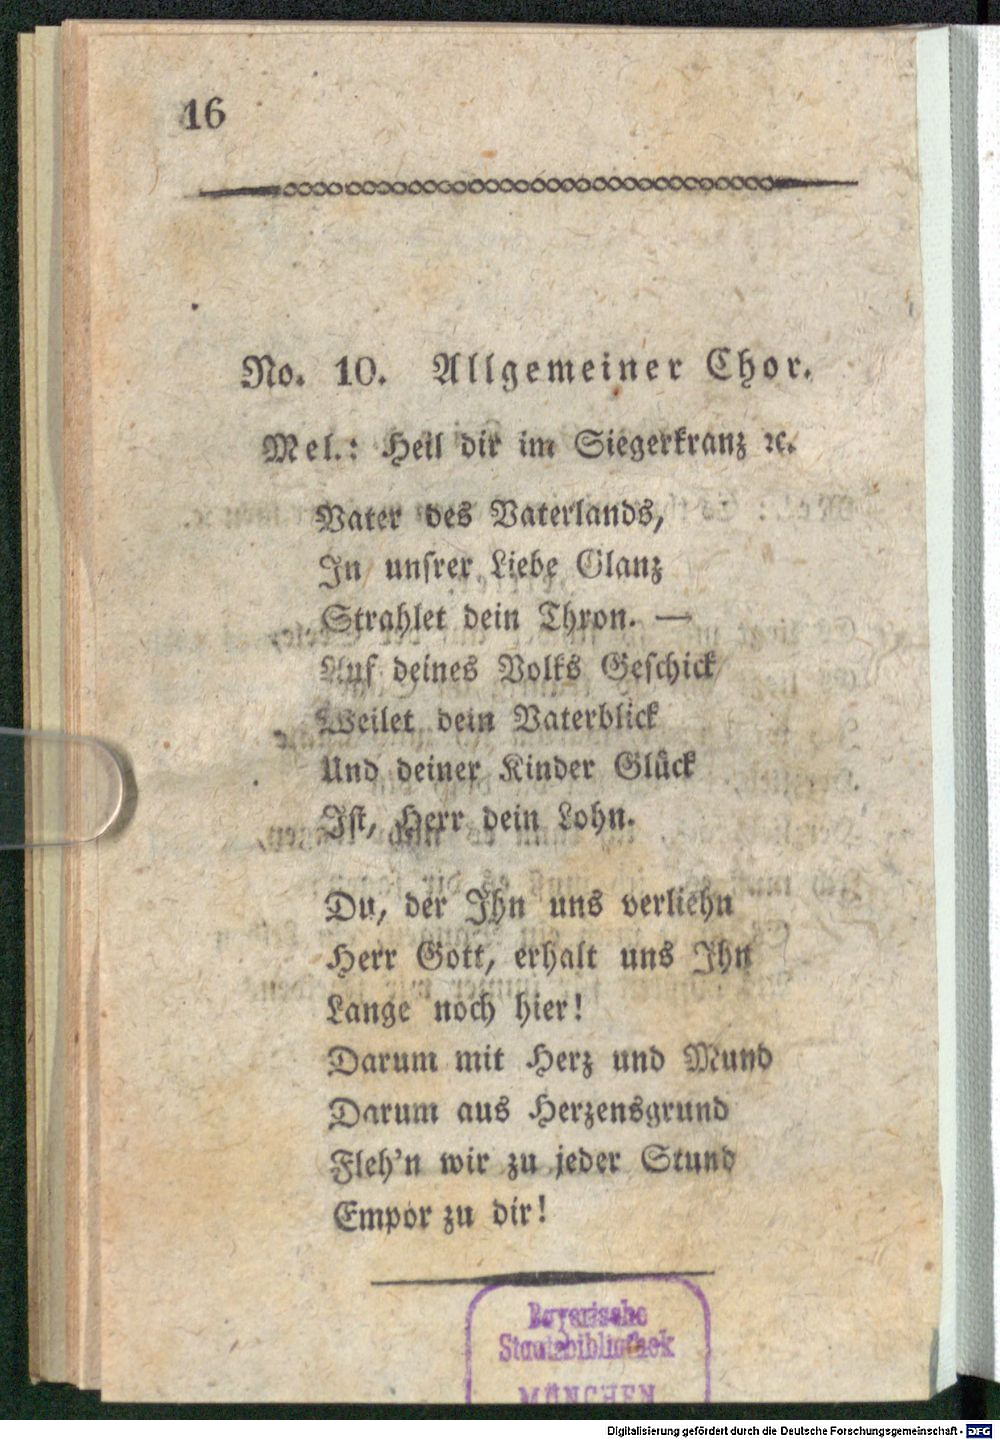 16
No. 10. Allgemeiner Chor.
Mel.: Heil dir im Siegerkranz ꝛc.
Vater des Vaterlands,
In unsrer Liebe Glanz
Strahlet dein Thron. —
Auf deines Volks Geschick
Weilet dein Vaterblick
Und deiner Kinder Glück
Ist, Herr dein Lohn.
Du, der Ihn uns verliehn
Herr Gott, erhalt uns Ihn
Lange noch hier!
Darum mit Herz und Mund
Darum aus Herzensgrund
Fleh'n wir zu jeder Stund
Empor zu dir!
Bayerische
Staatsbibliothek
MÜNCHEN
Digitalisierung gefördert durch die Deutsche Forschungsgemeinschaft - DFG